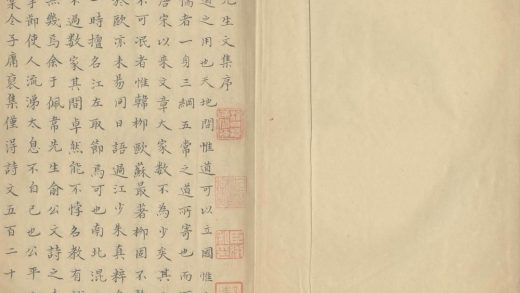 先生文集序
道之用也天地間惟道可以立國惟
儒者一身三綱五常之道所寄也而
唐宋以來文章大家數不為少矣其
不可泯者惟韓柳歐蘇最著柳固不
於歐亦未易同日語過江少朱真粹
一時擅名江左取節焉可也南北混
不過數家其間卓然能不悖名教有
無幾焉余于佩韋先生俞公文詩之
使人流涕太息不自已也公平
令子庸裒集僅得詩文五百二十